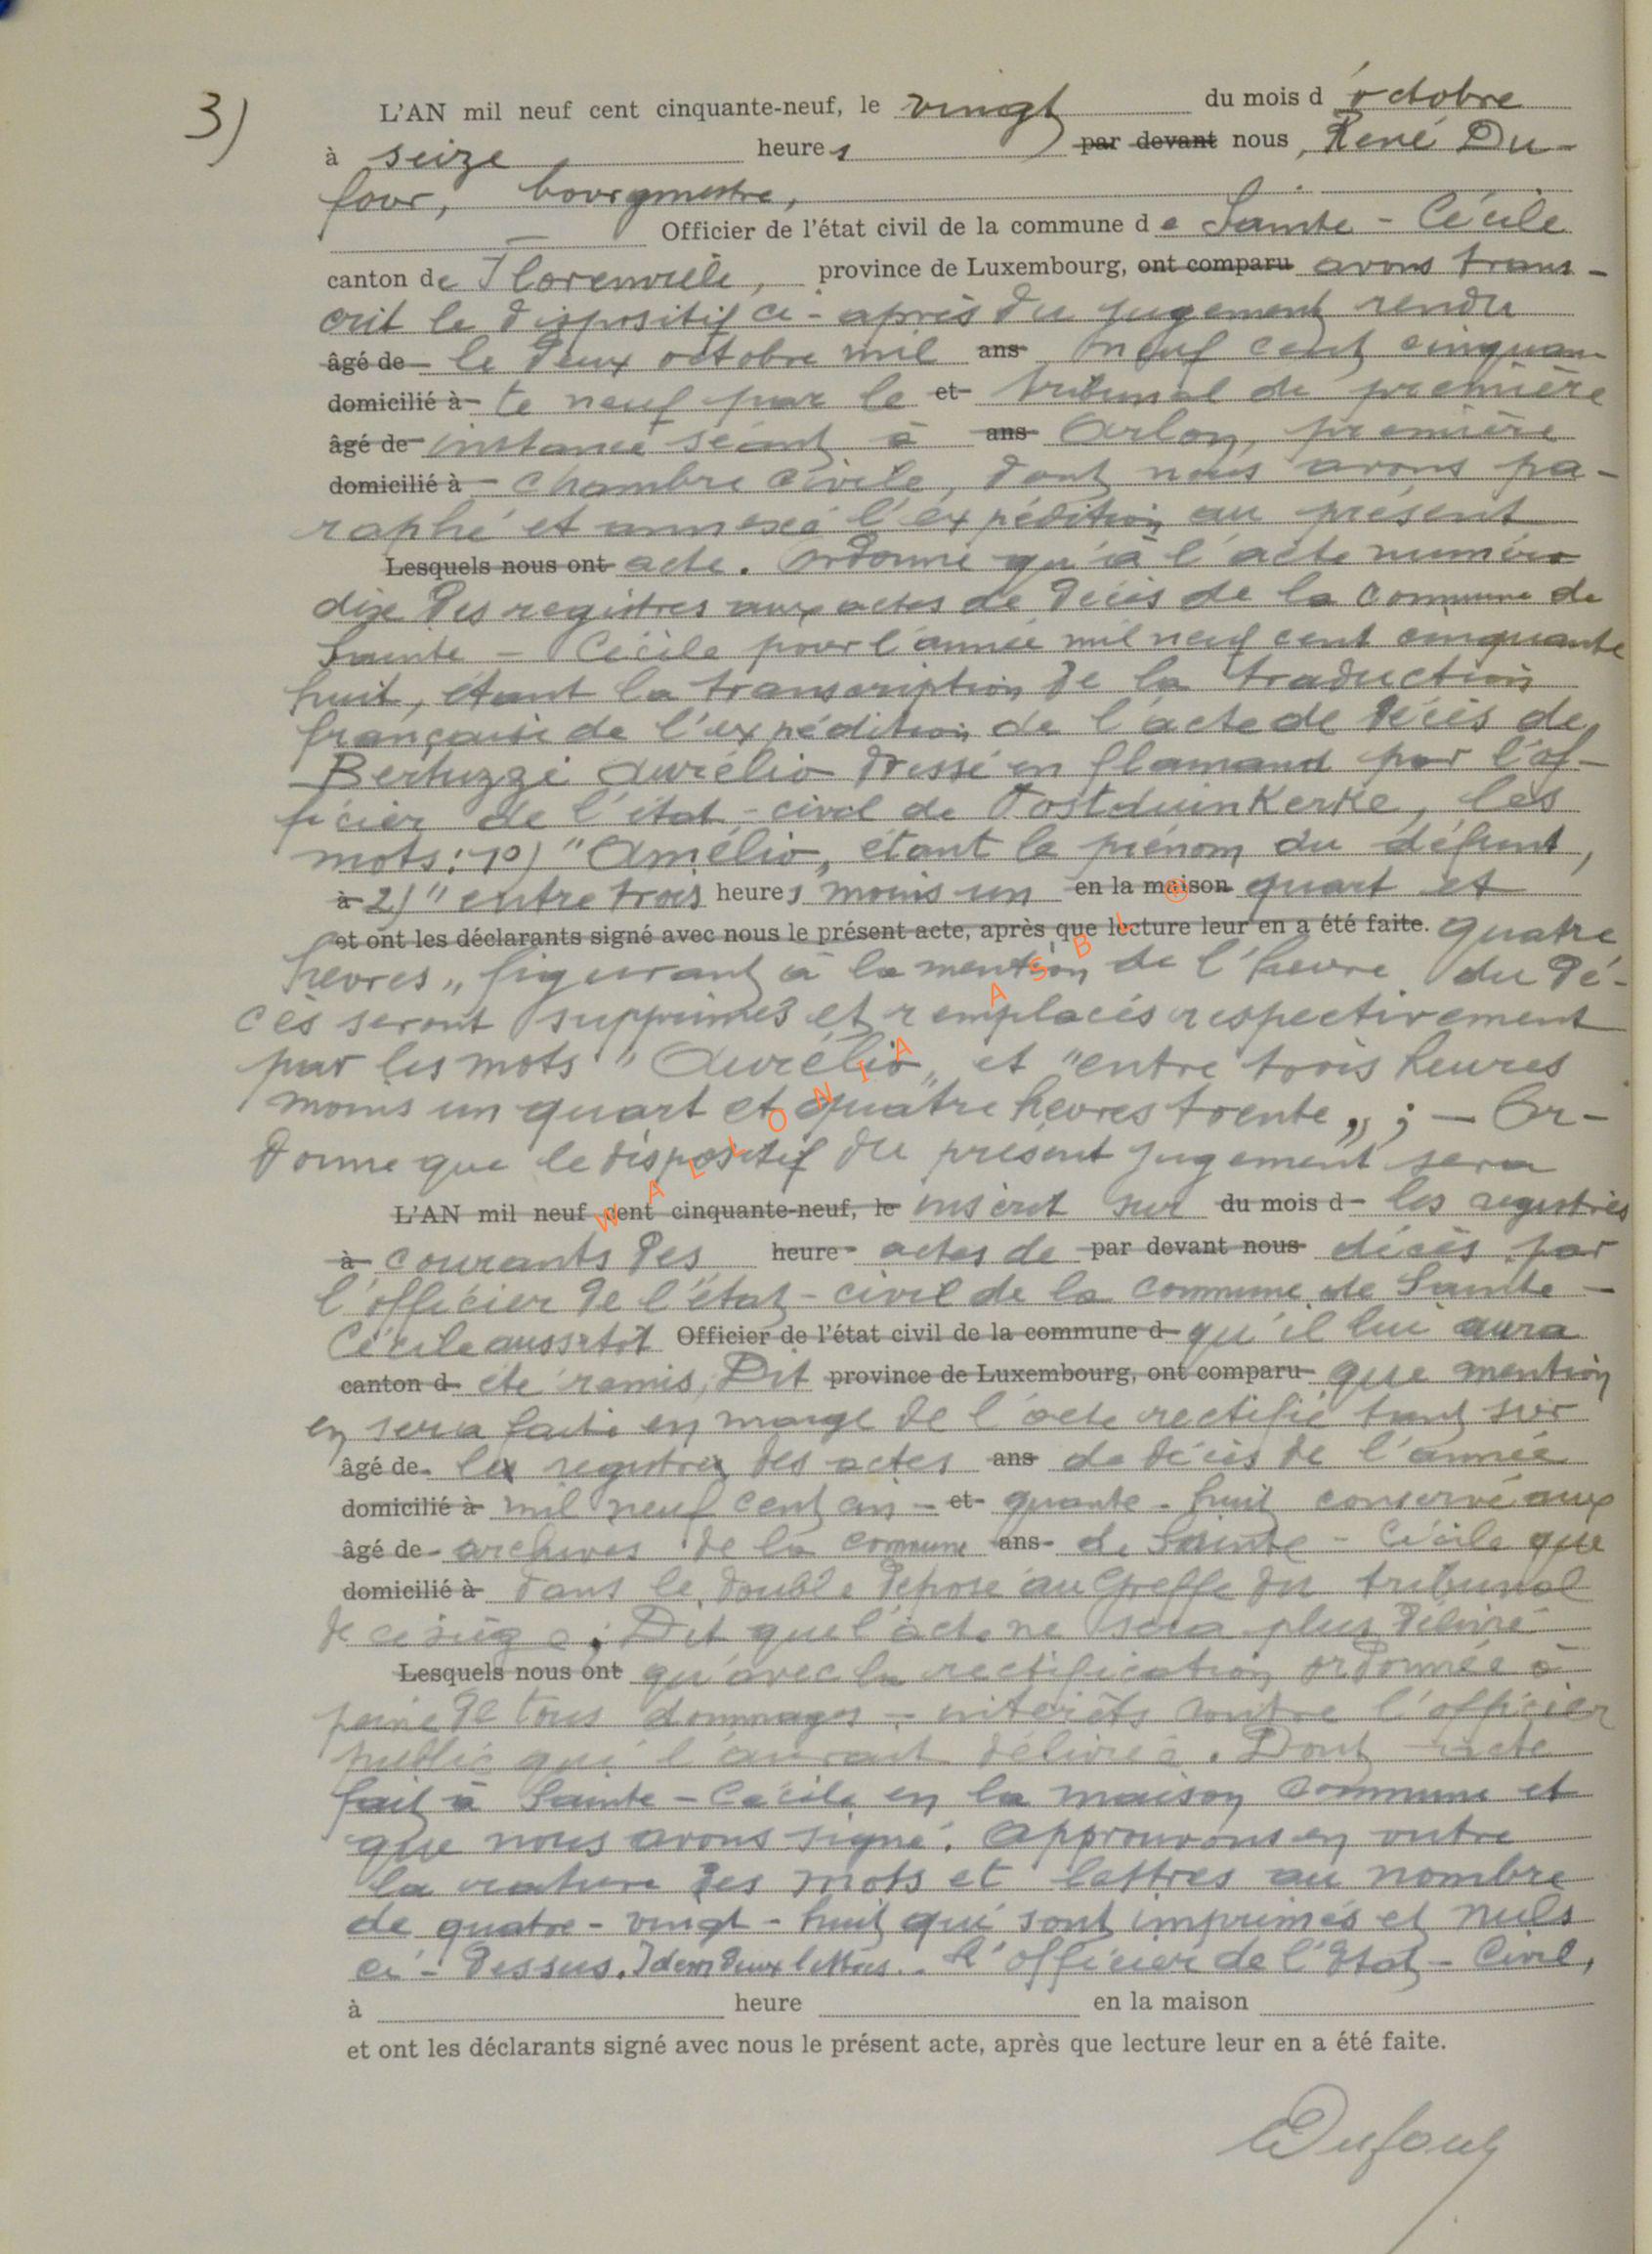 3)
L'AN mil neuf cent cinquante-neuf, le vingt du mois d'octobre
à seize heures par devant nous, René Du-
four, bourgmestre,
Officier de l'état civil de la commune de Sainte - Cécile
canton de Florenville, province de Luxembourg, ont comparu avons trans-
crit le dispositif ci-après du jugement rendu
âgé de le deux octobre mil ans neuf cent cinquan-
domicilié à te neuf par le et tribunal de première
âgé de instance séant à ans Arlon, première
domicilié à chambre civile, dont nous avons pa-
raphé et annexé l'expédition au présent
Lesquels nous ont acte. Ordonne qu'à l'acte numéro
dix des registres aux actes de décès de la commune de
Sainte - Cécile pour l'année mil neuf cent cinquante
huit, étant la transcription de la traduction
française de l'expédition de l'acte de décès de
Bertuzzi Aurélio dressé en flamand par l'of-
ficier de l'état-civil de Oostduinkerke, les
mots: 1°) "Amélio„ étant le prénom du défunt,
à 2) "entre trois heures moins un en la maison quart et
et ont les déclarants signé avec nous le présent acte, après que lecture leur en a été faite. quatre
heures„ figurant à la mention de l'heure du dé-
cès seront supprimés et remplacés respectivement
par les mots "Aurélio„ et "entre trois heures
moins un quart et quatre heures trente„; - Or-
donne que le dispositif du présent jugement sera
L'AN mil neuf cent cinquante-neuf, le inscrit sur du mois d les registres
à courants des heure actes de par devant nous décès par
l'officier de l'état-civil de la commune de Sainte -
Cécile aussitôt Officier de l'état civil de la commune d qu'il lui aura
canton d été remis, Dit province de Luxembourg, ont comparu que mention
en sera faite en marge de l'acte rectifié tant sur
âgé de le registre des actes ans de décès de l'année
domicilié à mil neuf cent cin - et quante - huit conservé aux
âgé de archives de la commune ans de Sainte - Cécile que
domicilié à dans le double déposé au Greffe du tribunal
de ce siège; Dit que l'acte ne sera plus délivré
Lesquels nous ont qu'avec la rectification ordonnée à
peine de tous dommages - intérêts contre l'officier
public qui l'aurait délivré. Dont acte
fait à Sainte - Cécile en la maison commune et
que nous avons signé. Approuvons en outre
la rature des mots et lettres au nombre
de quatre - vingt - huit qui sont imprimés et nuls
ci - dessus. Idem deux lettres. L'officier de l'Etat - Civil,
à heure en la maison
et ont les déclarants signé avec nous le présent acte, après que lecture leur en a été faite.
Dufour
WALLONIA ASBL ©